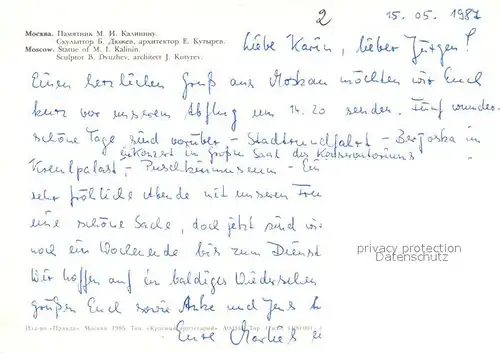 2
15. 05. 1987
Москва. Памятник М. И. Калинину.
Скульптор Б. Дюжев, архитектор Е. Кутырев.
Moscow. Statue of M. I. Kalinin.
Sculptor B. Dyuzhev, architect J. Kutyrev.
Liebe Karin, lieber Jürgen!
Einen herzlichen Gruß aus Moskau möchten wir Euch
kurz vor unserem Abflug um 14.20 senden. Fünf wunder-
schöne Tage sind vorüber – Stadtrundfahrt – Berjoska im
Konzert im Großen Saal des Konservatoriums
Kremlpalast – Puschkinmuseum – Ein
sehr fröhliche Abende mit unseren
eine schöne Sache, doch jetzt sind wir
noch ein Wochenende bis zum Dienst
Wir hoffen auf ein baldiges Wiedersehen
grüßen Euch sowie Anke und Jens
Eure
privacy protection
Datenschutz
Изд-во «Правда». Москва. 1985. Тип. «Красный пролетарий».